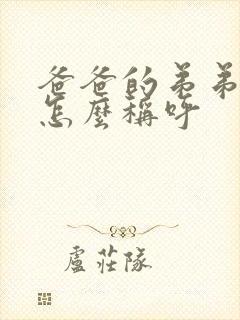 爸爸的弟弟
怎麼稱呼
盧莊隊